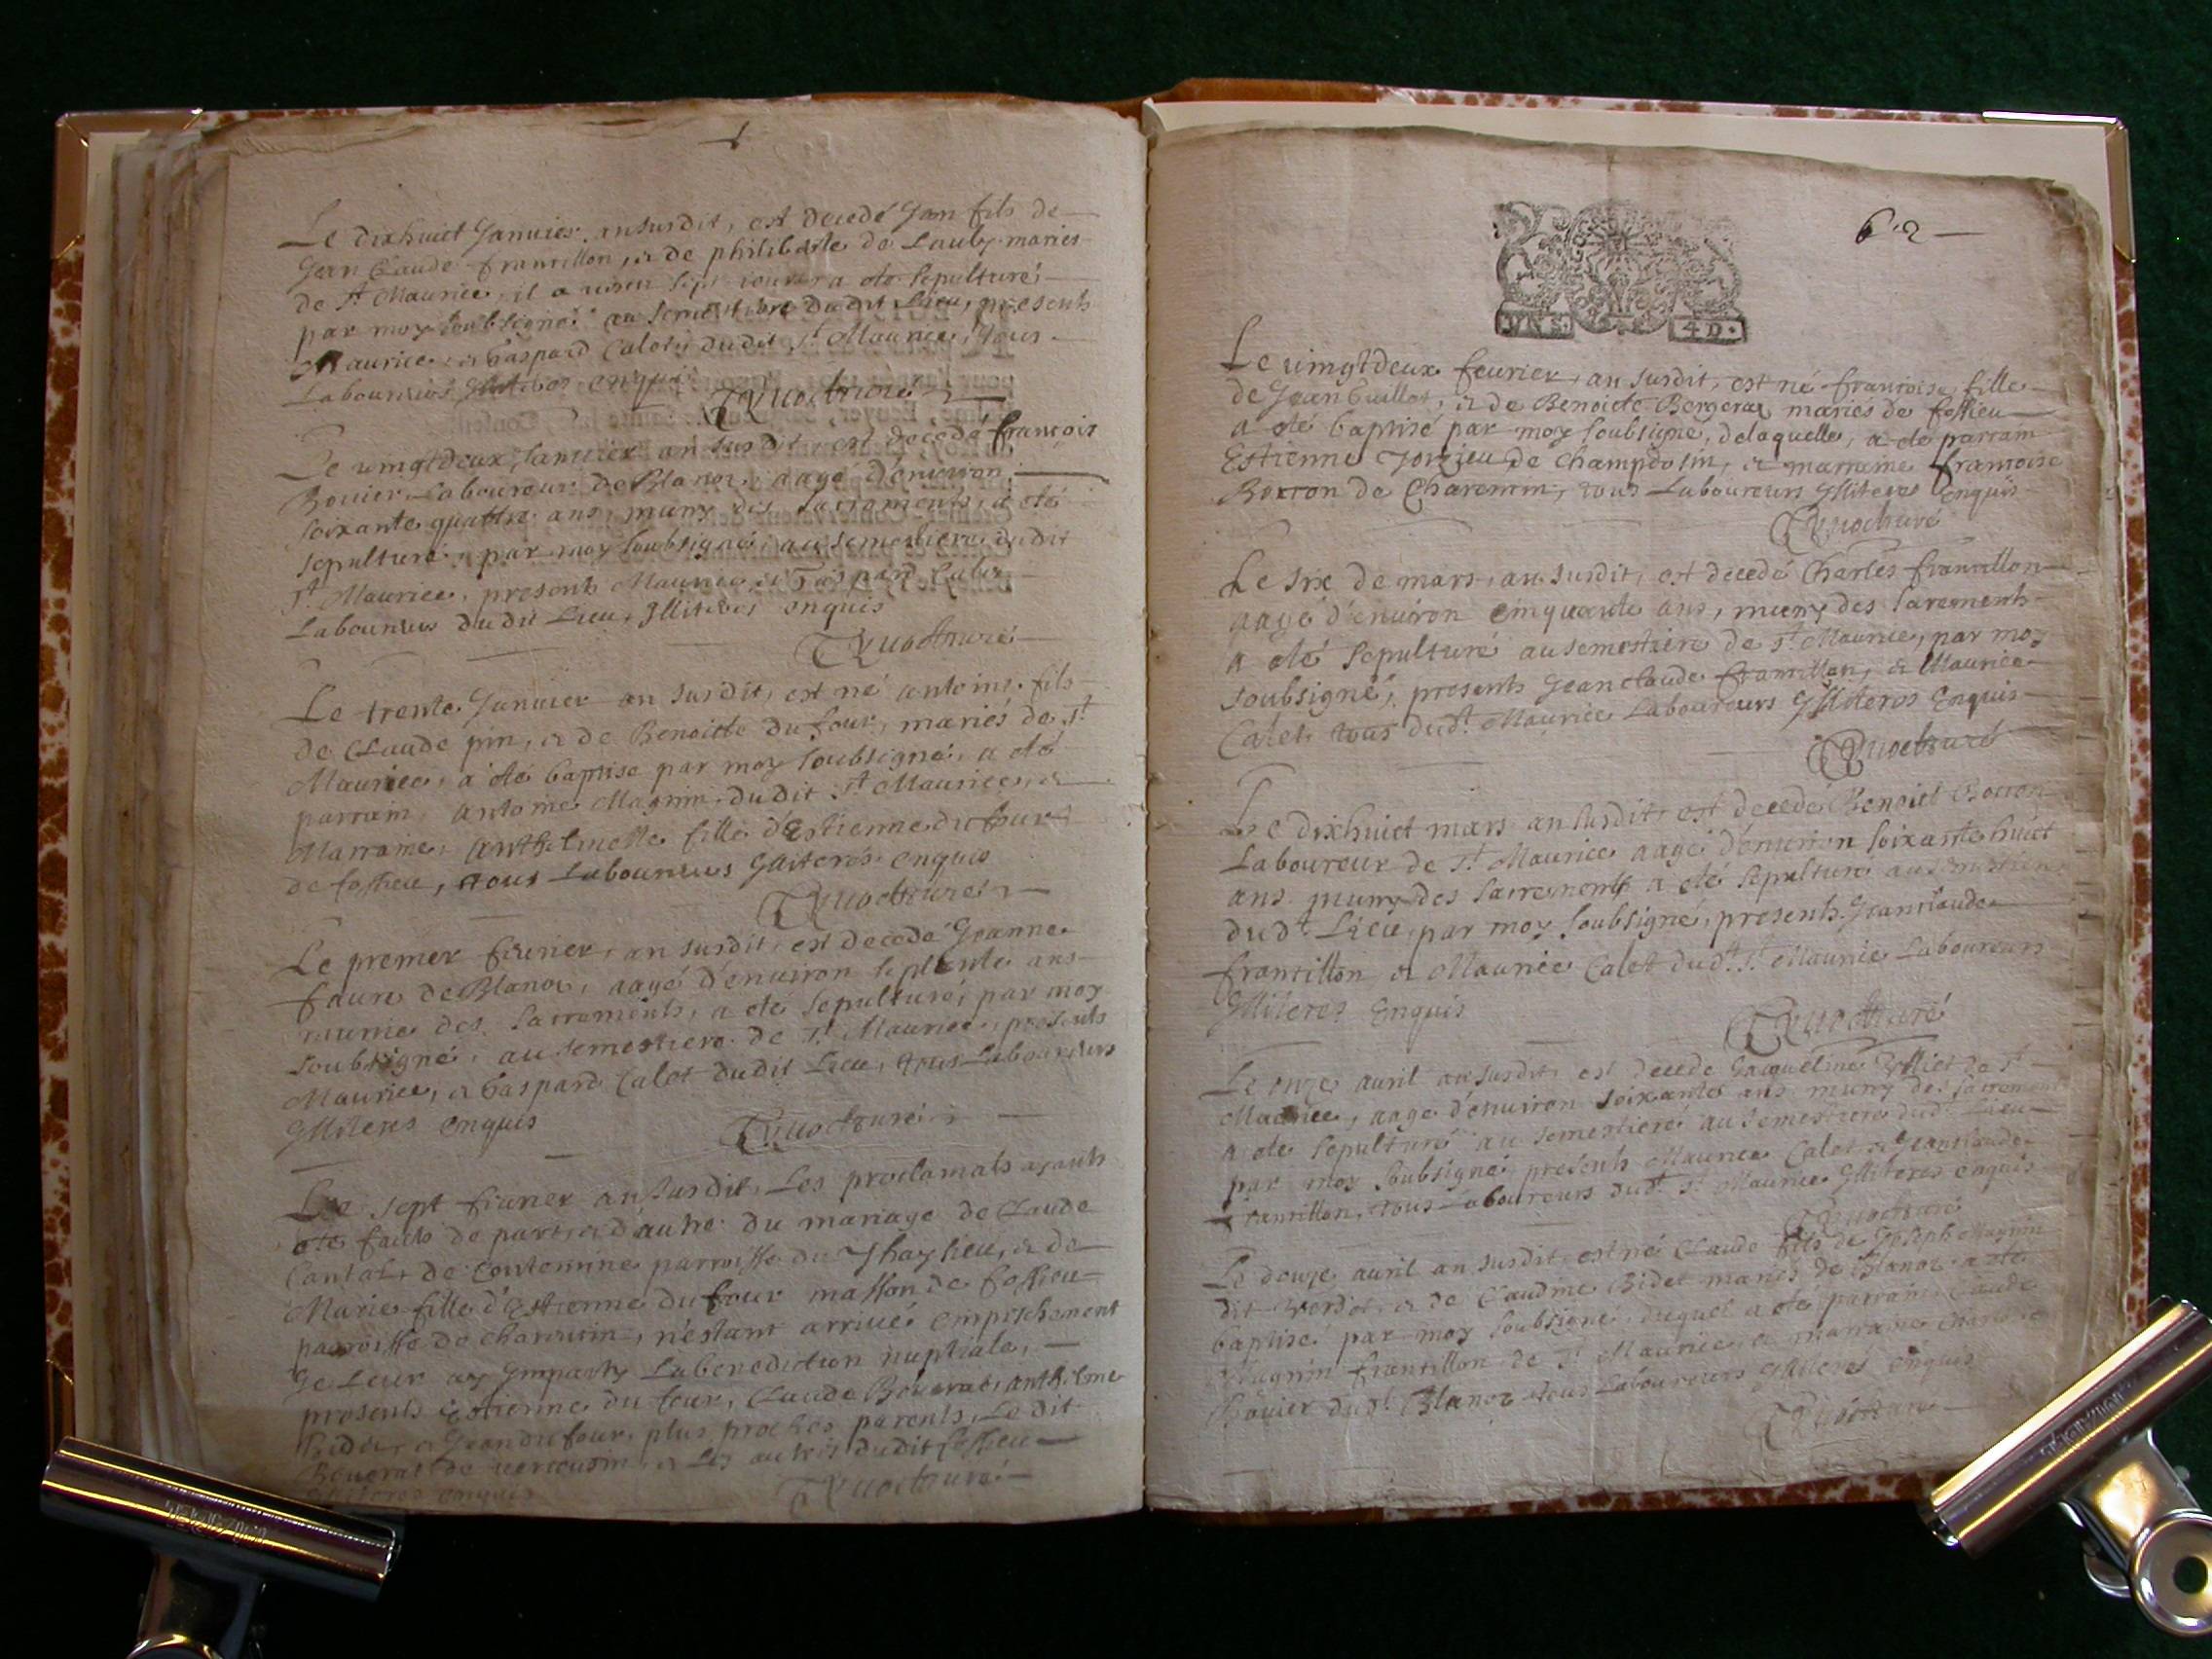 Le dixhuict Janvier, an susdit, est decedé Jean fils de
Jean Claude francillon, & de philiberte de Lauly maries
de St Maurice, il a vescu sept jours & a oté sepulturé
par moy soubsigné au semestiere dudit Lieu, presents
Maurice & Gaspard Calet dudit St Maurice, tous
Laboureurs Jlliteres enquis
curé
Le vingtdeux Janvier an susdit, est decedé françois
Bouier Laboureur de Blanoz, aagé d'environ
soixante quattre ans, muny des sacrements, a oté
sepulturé, par moy soubsigné, au semestiere dudit
St Maurice, presents Maurice & Gaspard Calet
Laboureurs dudit Lieu, Jlliteres enquis
curé
Le trente Janvier an susdit, est né antoine fils
de Claude pin, & de Benoitte du four, mariés de St
Maurice, a oté baptisé par moy soubsigné, a oté
parrain, antoine Magnin dudit St Maurice, &
Marraine, anthelmette fille d'Estienne du four
de Cossieu, tous Laboureurs Jlliterés enquis
curé
Le premer fevrier, an susdit, est decedé Jeanne
faure de Blanoz, aagé d'environ septente ans
munie des sacrements, a oté sepulturé, par moy
soubsigné, au semestiere de St Maurice, presents
Maurice, & Gaspard Calet dudit Lieu, tous Laboureurs
Jlliteres enquis
curé
Le sept fevrier an susdit, Les proclamats ayants
oté faicts de part, & d'autre du mariage de Claude
Cantal, de Contemine parroisse du & de
Marie fille d'Estienne du four masson de Cossieu
parroisse de charencin, n'estant arrivé empeschement
Je Leur ay Jmparty La benediction nuptiale,
presents Estienne du four, Claude Boverat, anthelme
Bidet, & Jean du four, plus proches parents, Le dit
Boverat de & Les autres dudit Cossieu
Jlliteres enquis
curé
6.2
VN S.
4 D.
Le vingtdeux fevrier, an susdit, est né françoise, fille
de Jean Guillot, & de Benoicte Bergerat mariés de Cossieu
a oté baptisé par moy soubsigné, de laquelle, a oté parrain
Estienne de Champdosin, & marraine françoise
Borron de Charencin, tous Laboureurs Jlliteres Enquis
curé
Le six de mars, an susdit, est decedé Charles francillon
aagé d'environ cinquante ans, muny des sacrements
a oté sepulturé au semestiere de St Maurice, par moy
soubsigné, presents Jeanclaude francillon, & Maurice
Calet tous dudt Maurice Laboureurs Jlliteres Enquis
curé
Le dixhuict mars an susdit, est decedé Benoict Borron
Laboureur de St Maurice aagé d'environ soixante huict
ans muny des sacrements a oté sepulturé au semestiere
dudt Lieu, par moy soubsigné, presents Jeanclaude
francillon & Maurice Calet dudt St Maurice Laboureurs
Jlliteres Enquis
curé
Le onze avril an susdit, est decede Jacqueline de St
Maurice, aage d'environ soixante ans muny des sacrements
a oté sepulturé au semestiere au semestiere dudt Lieu
par moy soubsigné presents Maurice Calet & Jeanclaude
francillon, tous Laboureurs dudt St Maurice Jlliteres enquis
curé
Le douze avril an susdit est né Claude fils de Joseph Magnin
dit verdot, & de Claudine Bidet mariés de Blanoz a oté
baptisé par moy soubsigné, duquel a oté parrain, Claude
Magnin francillon de St Maurice, & marraine
Bouier dudt Blanoz tous Laboureurs Jlliterés enquis